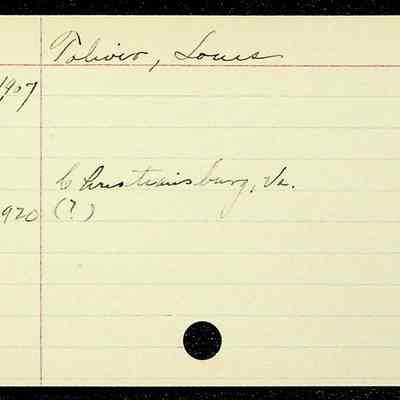 Toliver, Louis
1907
Christiansburg, Va.
1920 (?)